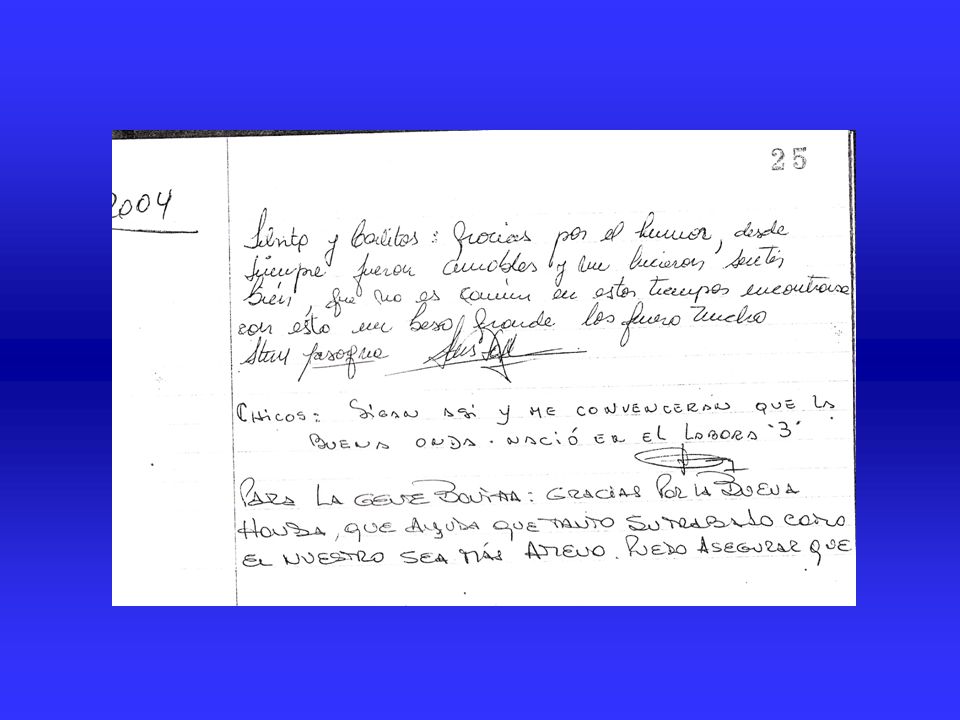 25
2004
y Carlitos: Gracias por el humor, desde
siempre fueron amables y me hicieron sentir
bién, que no es común en estos tiempos encontrarse
con esto un beso grande los quiero mucho
CHICOS: SIGAN ASI Y ME CONVENCERAN QUE LA
BUENA ONDA. NACIÓ EN EL LABORA "3"
PARA LA GENTE BONITAA: GRACIAS POR LA BUENA
HONDA, QUE AYUDA QUE TANTO SU TRABAJO COMO
EL NUESTRO SEA MÁS AMENO. PUEDO ASEGURAR QUE